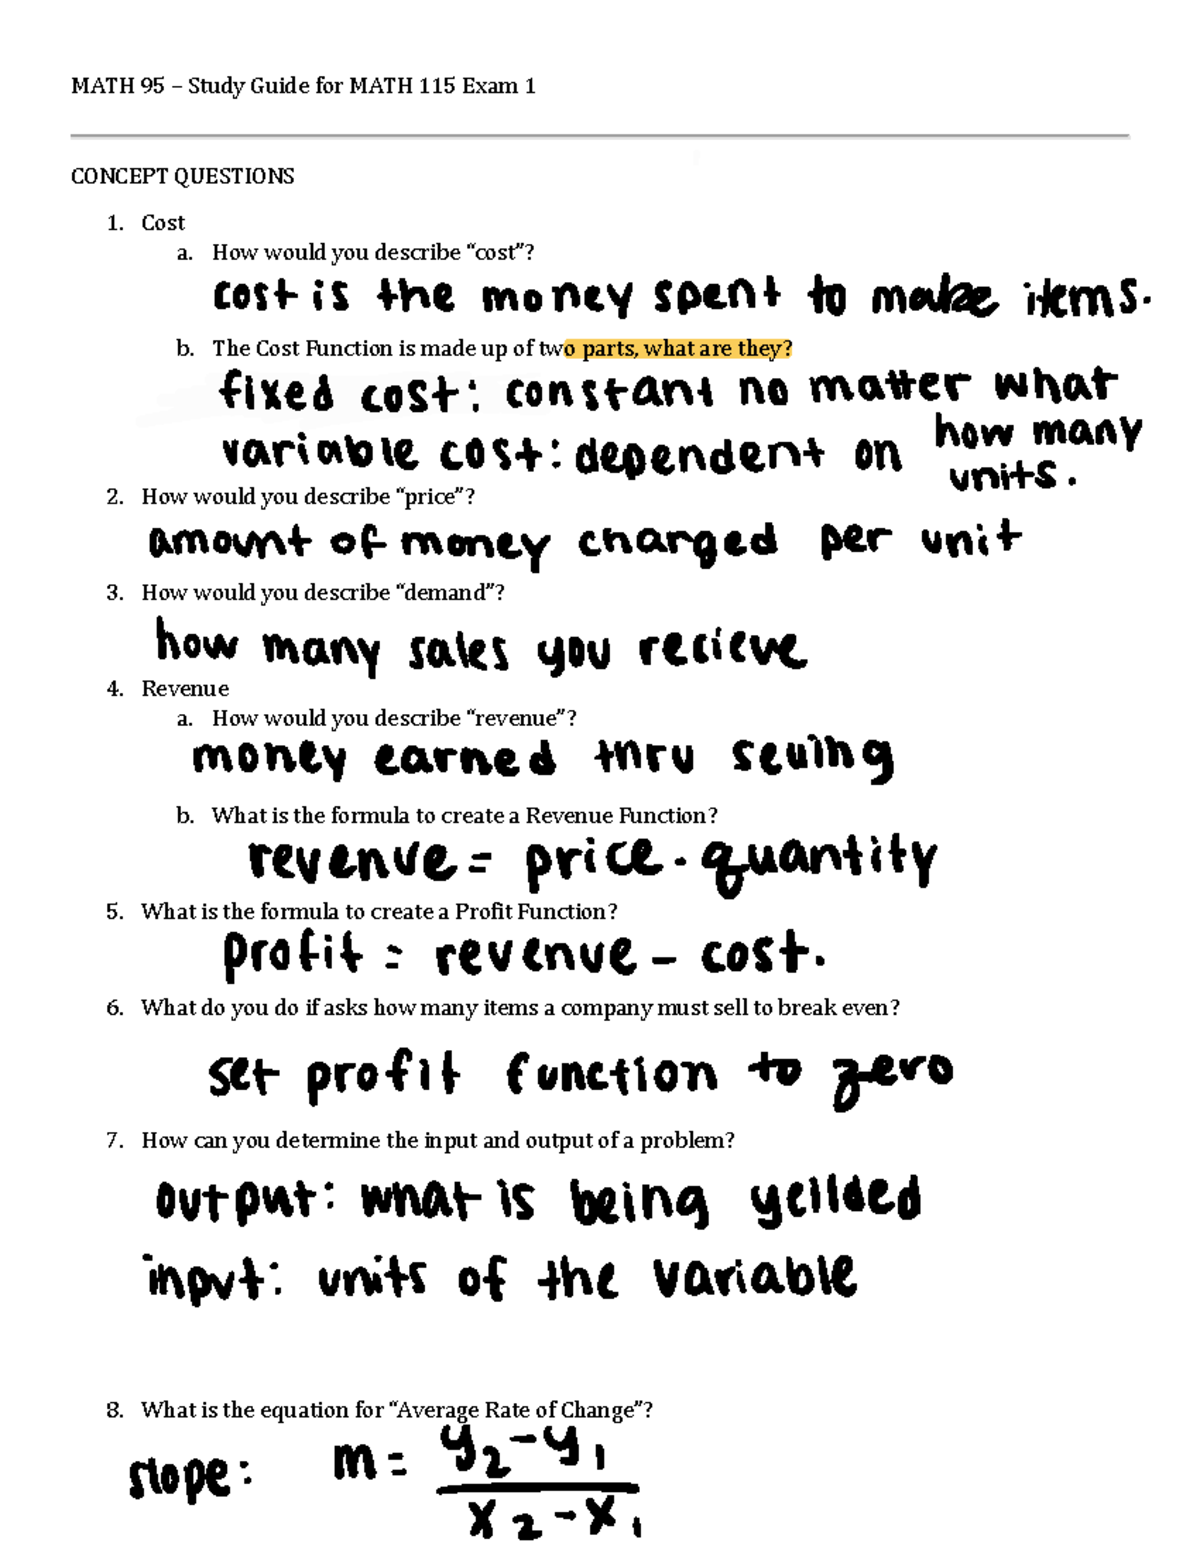 MATH 95 – Study Guide for MATH 115 Exam 1
CONCEPT QUESTIONS
1. Cost
a. How would you describe “cost”?
cost is the money spent to make items.
b. The Cost Function is made up of two parts, what are they?
fixed cost: constant no matter what
variable cost: dependent on how many
units.
2. How would you describe “price”?
amount of money charged per unit
3. How would you describe “demand”?
how many sales you recieve
4. Revenue
a. How would you describe “revenue”?
money earned thru selling
b. What is the formula to create a Revenue Function?
revenue = price · quantity
5. What is the formula to create a Profit Function?
profit = revenue – cost.
6. What do you do if asks how many items a company must sell to break even?
set profit function to zero
7. How can you determine the input and output of a problem?
output: what is being yeilded
input: units of the variable
8. What is the equation for “Average Rate of Change”?
slope: m = y2 - y1
x2 - x1